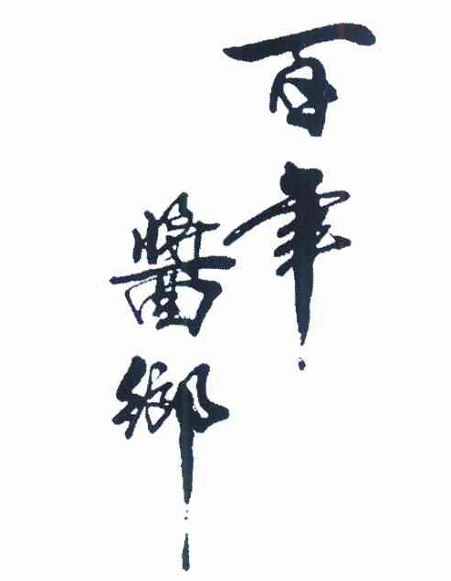 百年
醬鄉